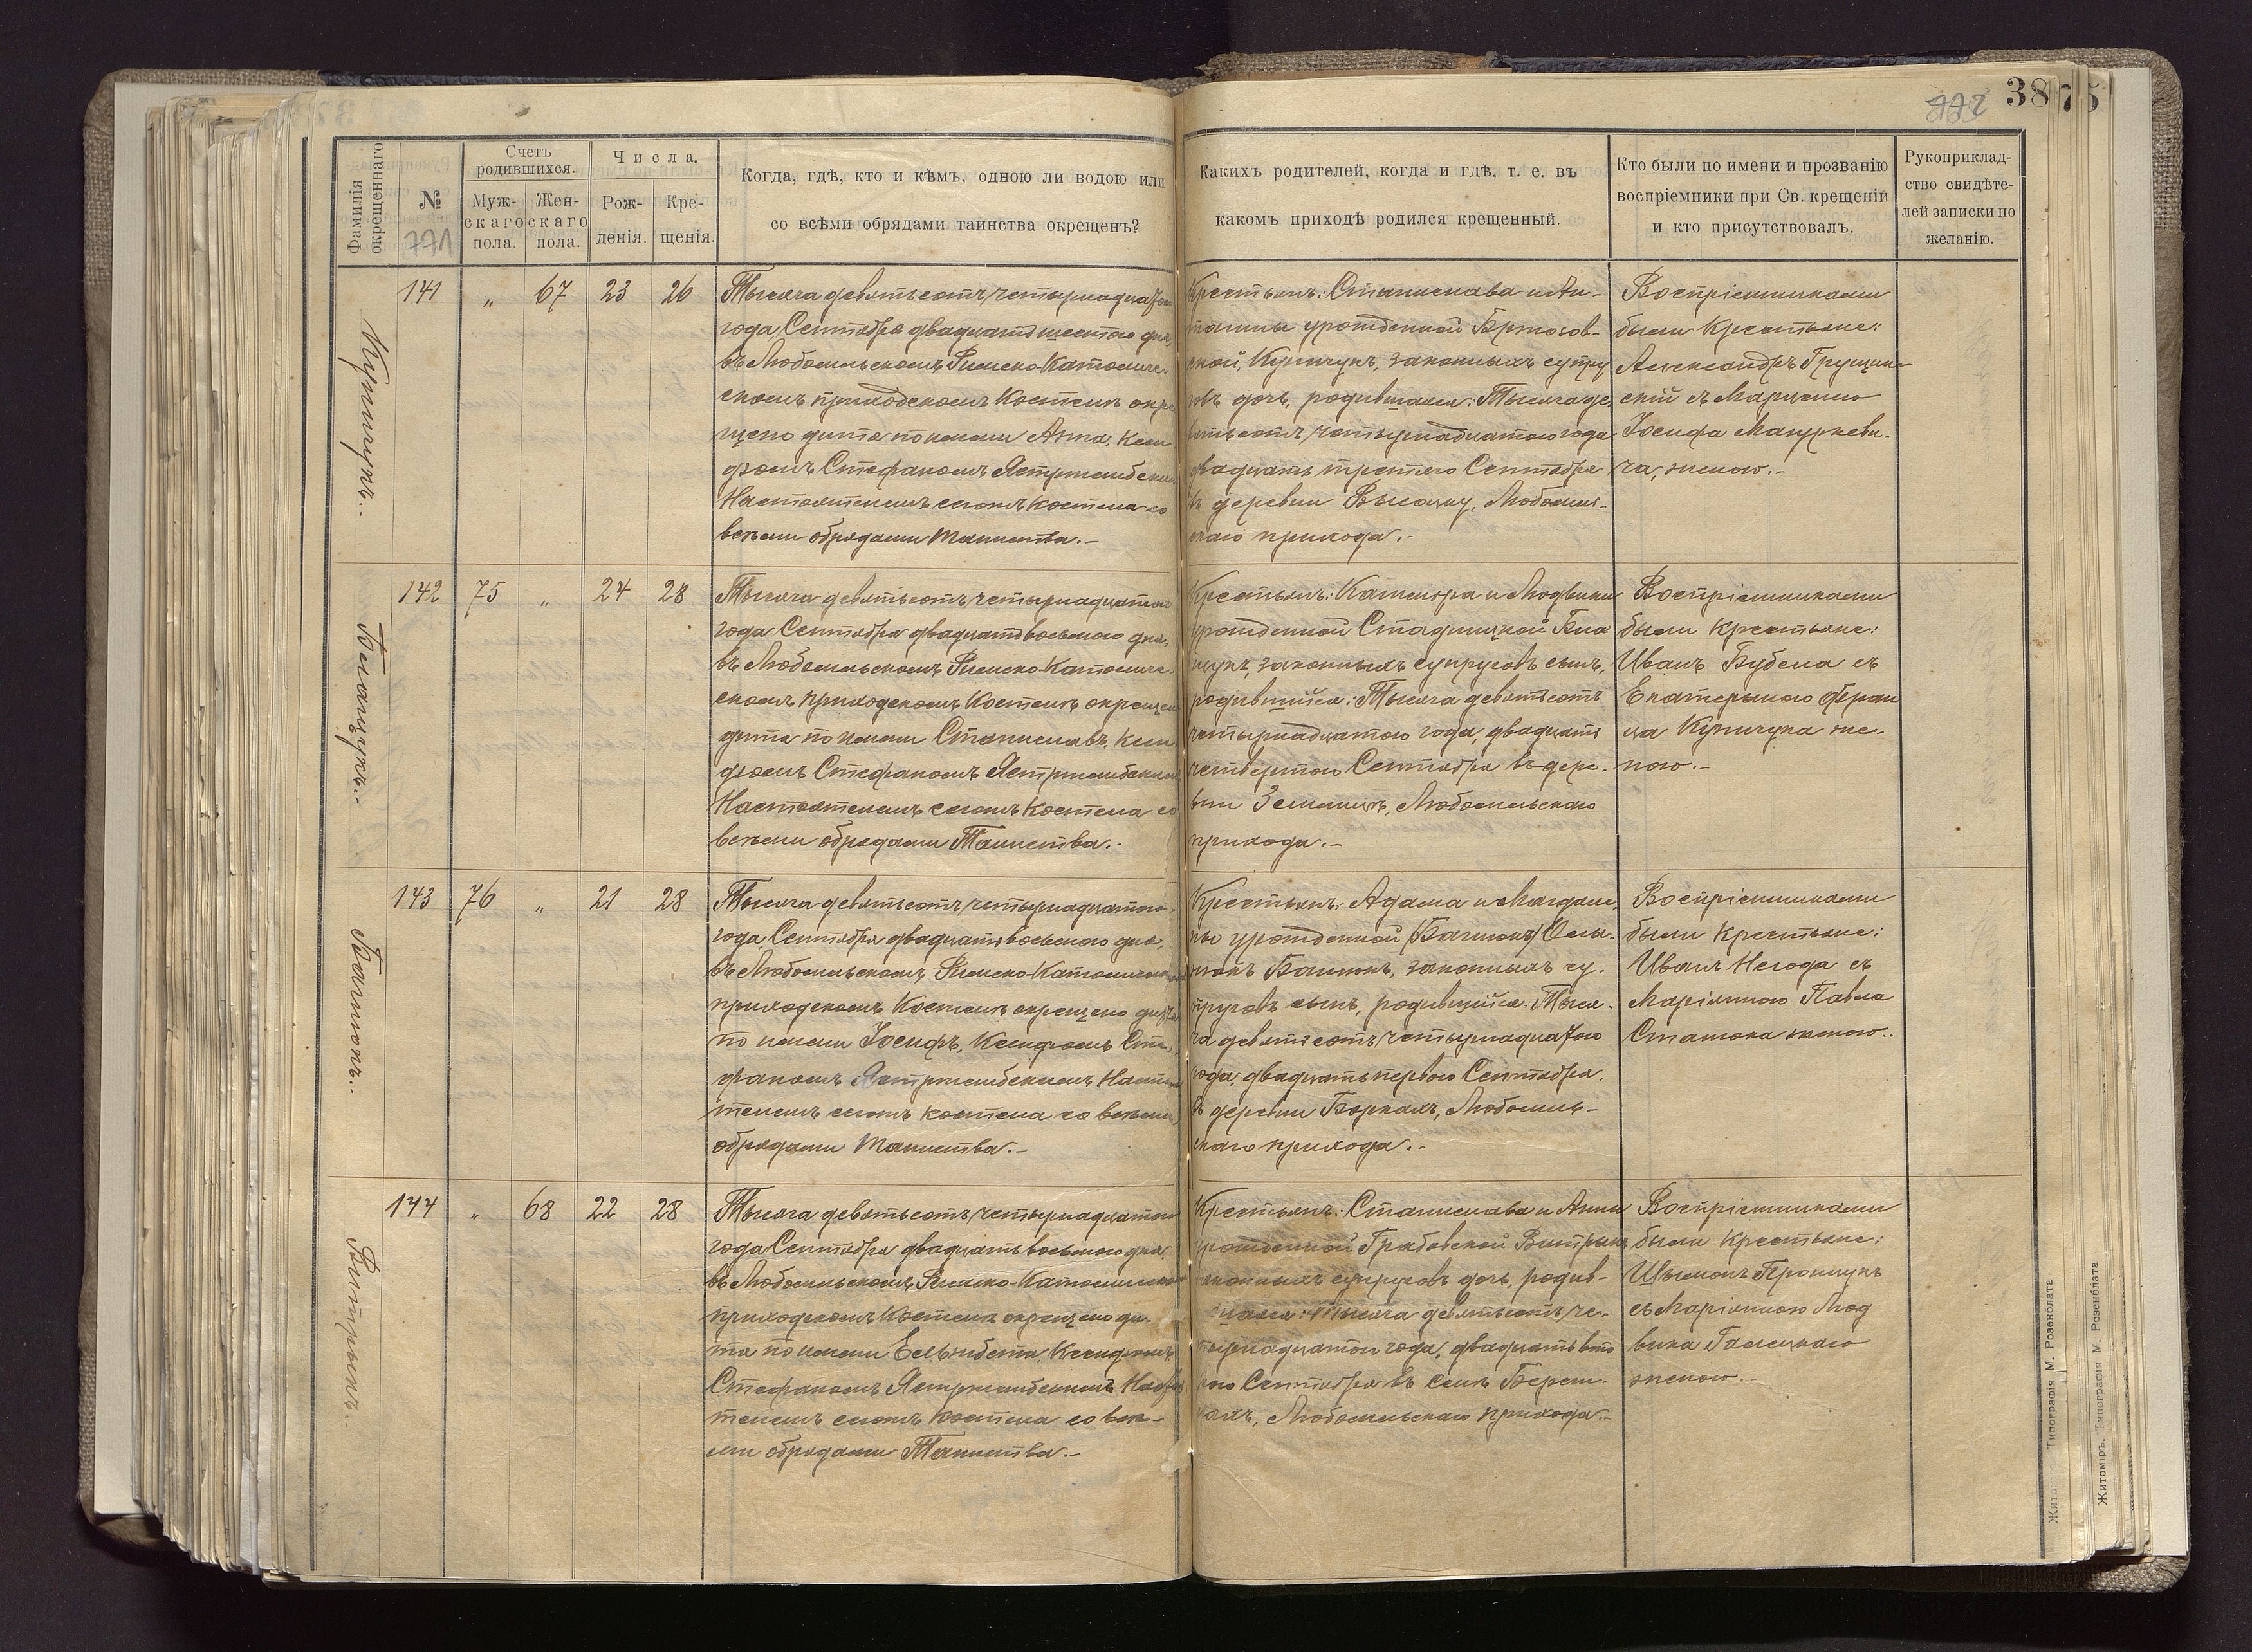 772 38 75
Фамилія окрещеннаго
№
771
Счетъ родившихся.
Муж-скаго пола.
Жен-скаго пола.
Числа.
Рож-денія.
Кре-щенія.
Когда, гдѣ, кто и кѣмъ, одною ли водою или
со всѣми обрядами таинства окрещенъ?
Какихъ родителей, когда и гдѣ, т. е. въ
какомъ приходѣ родился крещенный.
Кто были по имени и прозванію
воспріемники при Св. крещеніи
и кто присутствовалъ.
Рукоприклад-
ство свидѣте-
лей записки по
желанію.
Купичукъ.
141 „ 67 23 26
Тысяча девятьсотъ четырнадцатаго
года Сентября двадцать шестого дня,
въ Любомльскомъ Римско-Католиче-
скомъ приходскомъ Костелѣ окре
щено дитя по имени Анна, Ксен
дзомъ Стефаномъ Ястржембскимъ
Настоятелемъ сего костела со
всѣми обрядами Таинства.-
Крестьянъ: Станислава и Ан-
тонины урожденной Бржозов-
ской, Купичукъ, законныхъ супру
говъ дочь, родившаяся: Тысяча де
вятьсотъ четырнадцатаго года
двадцать третьяго Сентября
въ деревни Высоцку, Любомль-
скаго прихода.-
Воспріемниками
были Крестьяне:
Александръ Грущин-
скій съ Марцелею
Іосифа Мацкеви-
ча, женою.-
142 75 „ 24 28
Тысяча девятьсотъ четырнадцатаго
года Сентября двадцать восьмого дня,
въ Любомльскомъ Римско-Католиче-
скомъ приходскомъ Костелѣ окрещено
дитя по имени Станиславъ, Ксен
дзомъ Стефаномъ Ястржембскимъ
Настоятелемъ сего Костела со
всѣми обрядами Таинства.-
Крестьянъ: Казимира и Людвики
урожденной Стадницкой
законныхъ супруговъ сынъ,
родившійся: Тысяча девятьсотъ
четырнадцатаго года, двадцать
четвертого Сентября въ дере-
вни Земляцѣ, Любомльскаго
прихода.-
Воспріемниками
были Крестьяне:
Иванъ Бубела съ
Екатериною Фран
ца Купичука же-
ною.-
143 76 „ 21 28
Тысяча девятьсотъ четырнадцатаго
года Сентября двадцать восьмого дня,
въ Любомльскомъ Римско-Католическомъ
приходскомъ Костелѣ окрещено дитя
по имени Іосифъ, Ксендзомъ Сте-
фаномъ Ястржембскимъ Настоя
телемъ сего костела со всѣми
обрядами Таинства.-
Крестьянъ: Адама и Магдале-
ны урожденной
законныхъ су-
пруговъ сынъ, родившійся: Тыся-
ча девятьсотъ четырнадцатаго
года, двадцать перваго Сентября.
въ деревни Боркахъ, Любомль-
скаго прихода.-
Воспріемниками
были Крестьяне:
Иванъ Негода съ
Маріянною Павла
женою..
144 „ 68 22 28
Тысяча девятьсотъ четырнадцатаго
года Сентября двадцать восьмого дня
въ Любомльскомъ Римско-Католическомъ
приходскомъ Костелѣ окрещено ди-
тя по имени Ельжбета, Ксендзомъ
Стефаномъ Ястржембскимъ Настоя
телемъ сего Костела со всѣ-
ми обрядами Таинства.-
Крестьянъ: Станислава и Анны
урожденной Грабовской Витрыкъ
законныхъ супруговъ дочь, родив-
шаяся: Тысяча девятьсотъ че-
тырнадцатаго года, двадцать вто
рого Сентября въ селѣ Береж-
цахъ, Любомльскаго прихода.-
Воспріемниками
были Крестьяне:
съ Маріянною Люд
вика Галецкаго
женою.-
Витрыкъ.
Типографія М. Розенблата
Житоміръ. Типографія М. Розенблата